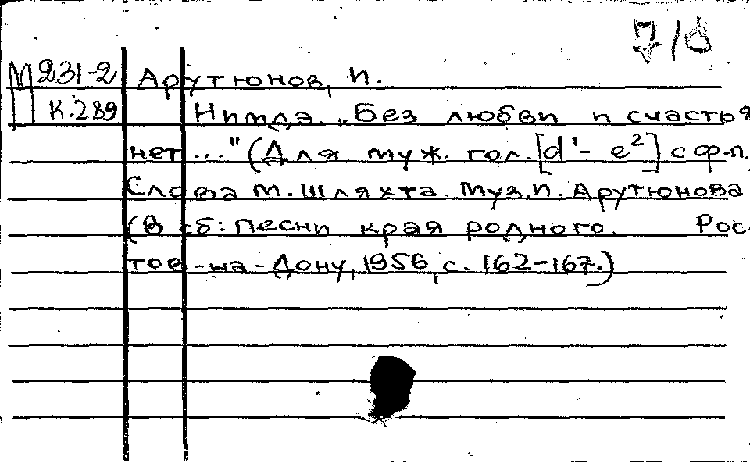 7/6
М 231-2 Арутюнов, П.
К.289 Нимда. „Без любви и счастья
нет..." (Для муж. гол. [d¹- e²] с ф-п.
Слова М. Шляхта. Муз. П. Арутюнова
(В сб: Песни края родного. Рос-
тов-на-Дону, 1956, с. 162-167.)